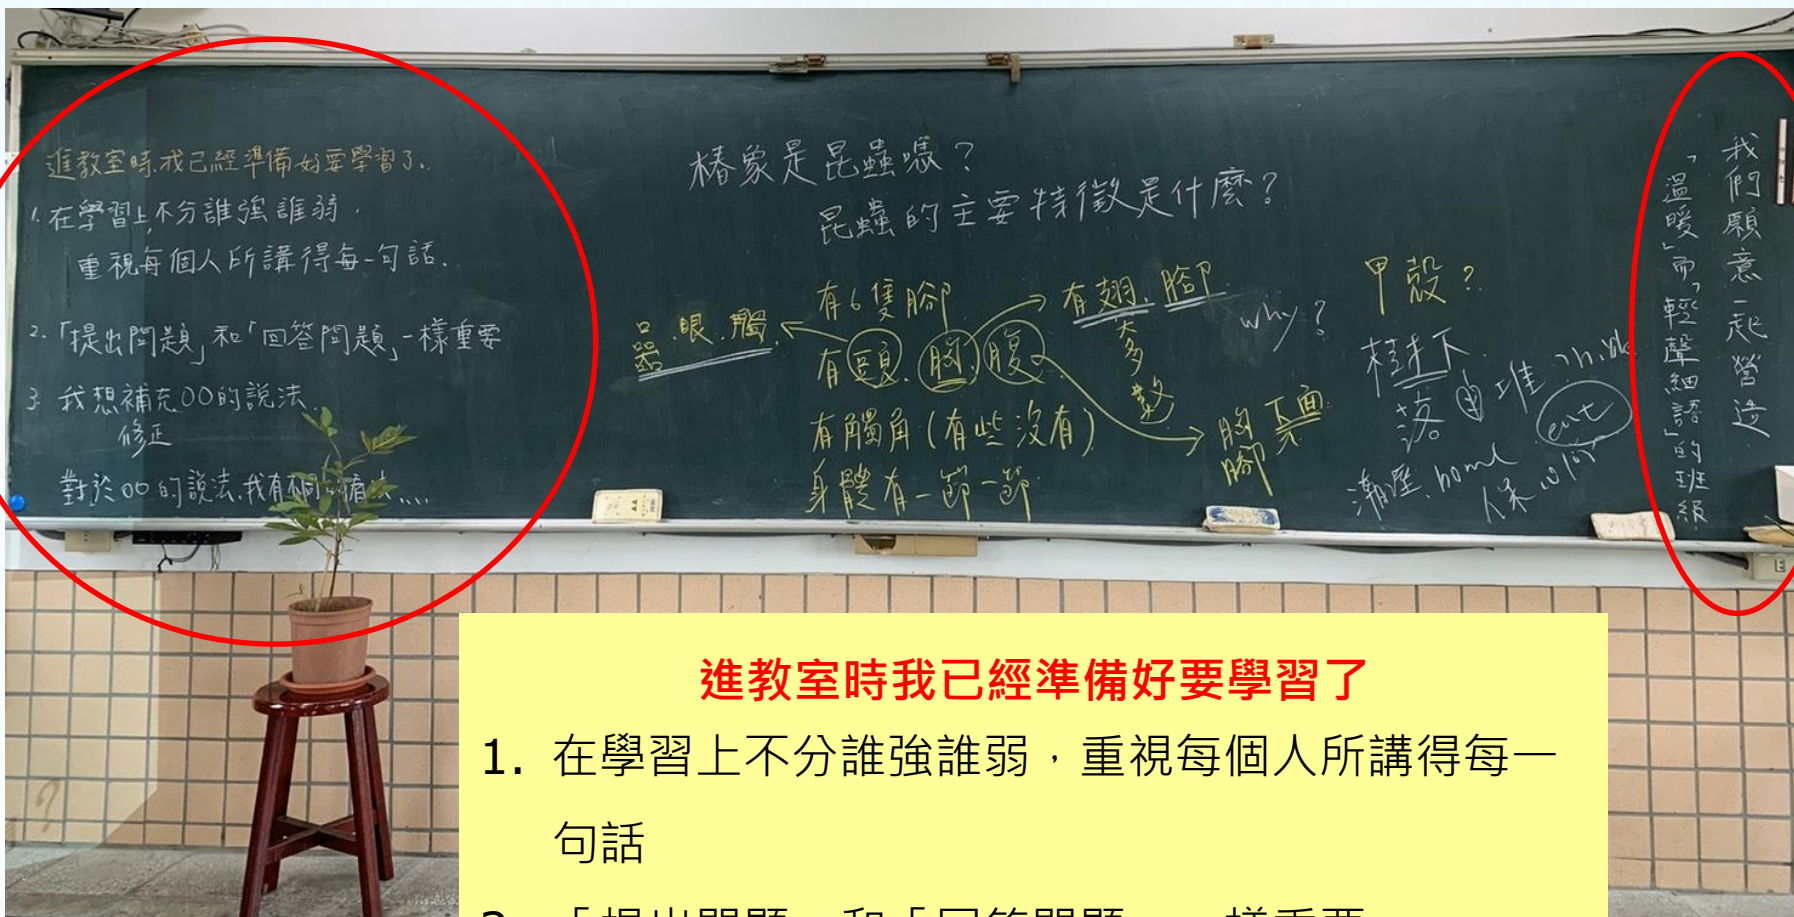 進教室時我已經準備好要學習了.
1. 在學習上不分誰強誰弱.
重視每個人所講得每一句話.
2.「提出問題」和「回答問題」一樣重要
3. 我想補充OO的說法.
修正
對於OO的說法,我有不同的看法....
椿象是昆蟲嗎?
昆蟲的主要特徵是什麼?
有6隻腳
有頭.胸.腹
有觸角(有些沒有)
身體有一節一節
眼.觸
器
有翅.腳
大多數
why?
胸下面
腳
甲殼?
樹下
落 堆
潮溼.
我們願意一起營造
「溫暖」而「輕聲細語」的班級
進教室時我已經準備好要學習了
1. 在學習上不分誰強誰弱，重視每個人所講得每一
句話
2. 「提出問題」和「回答問題」一樣重要